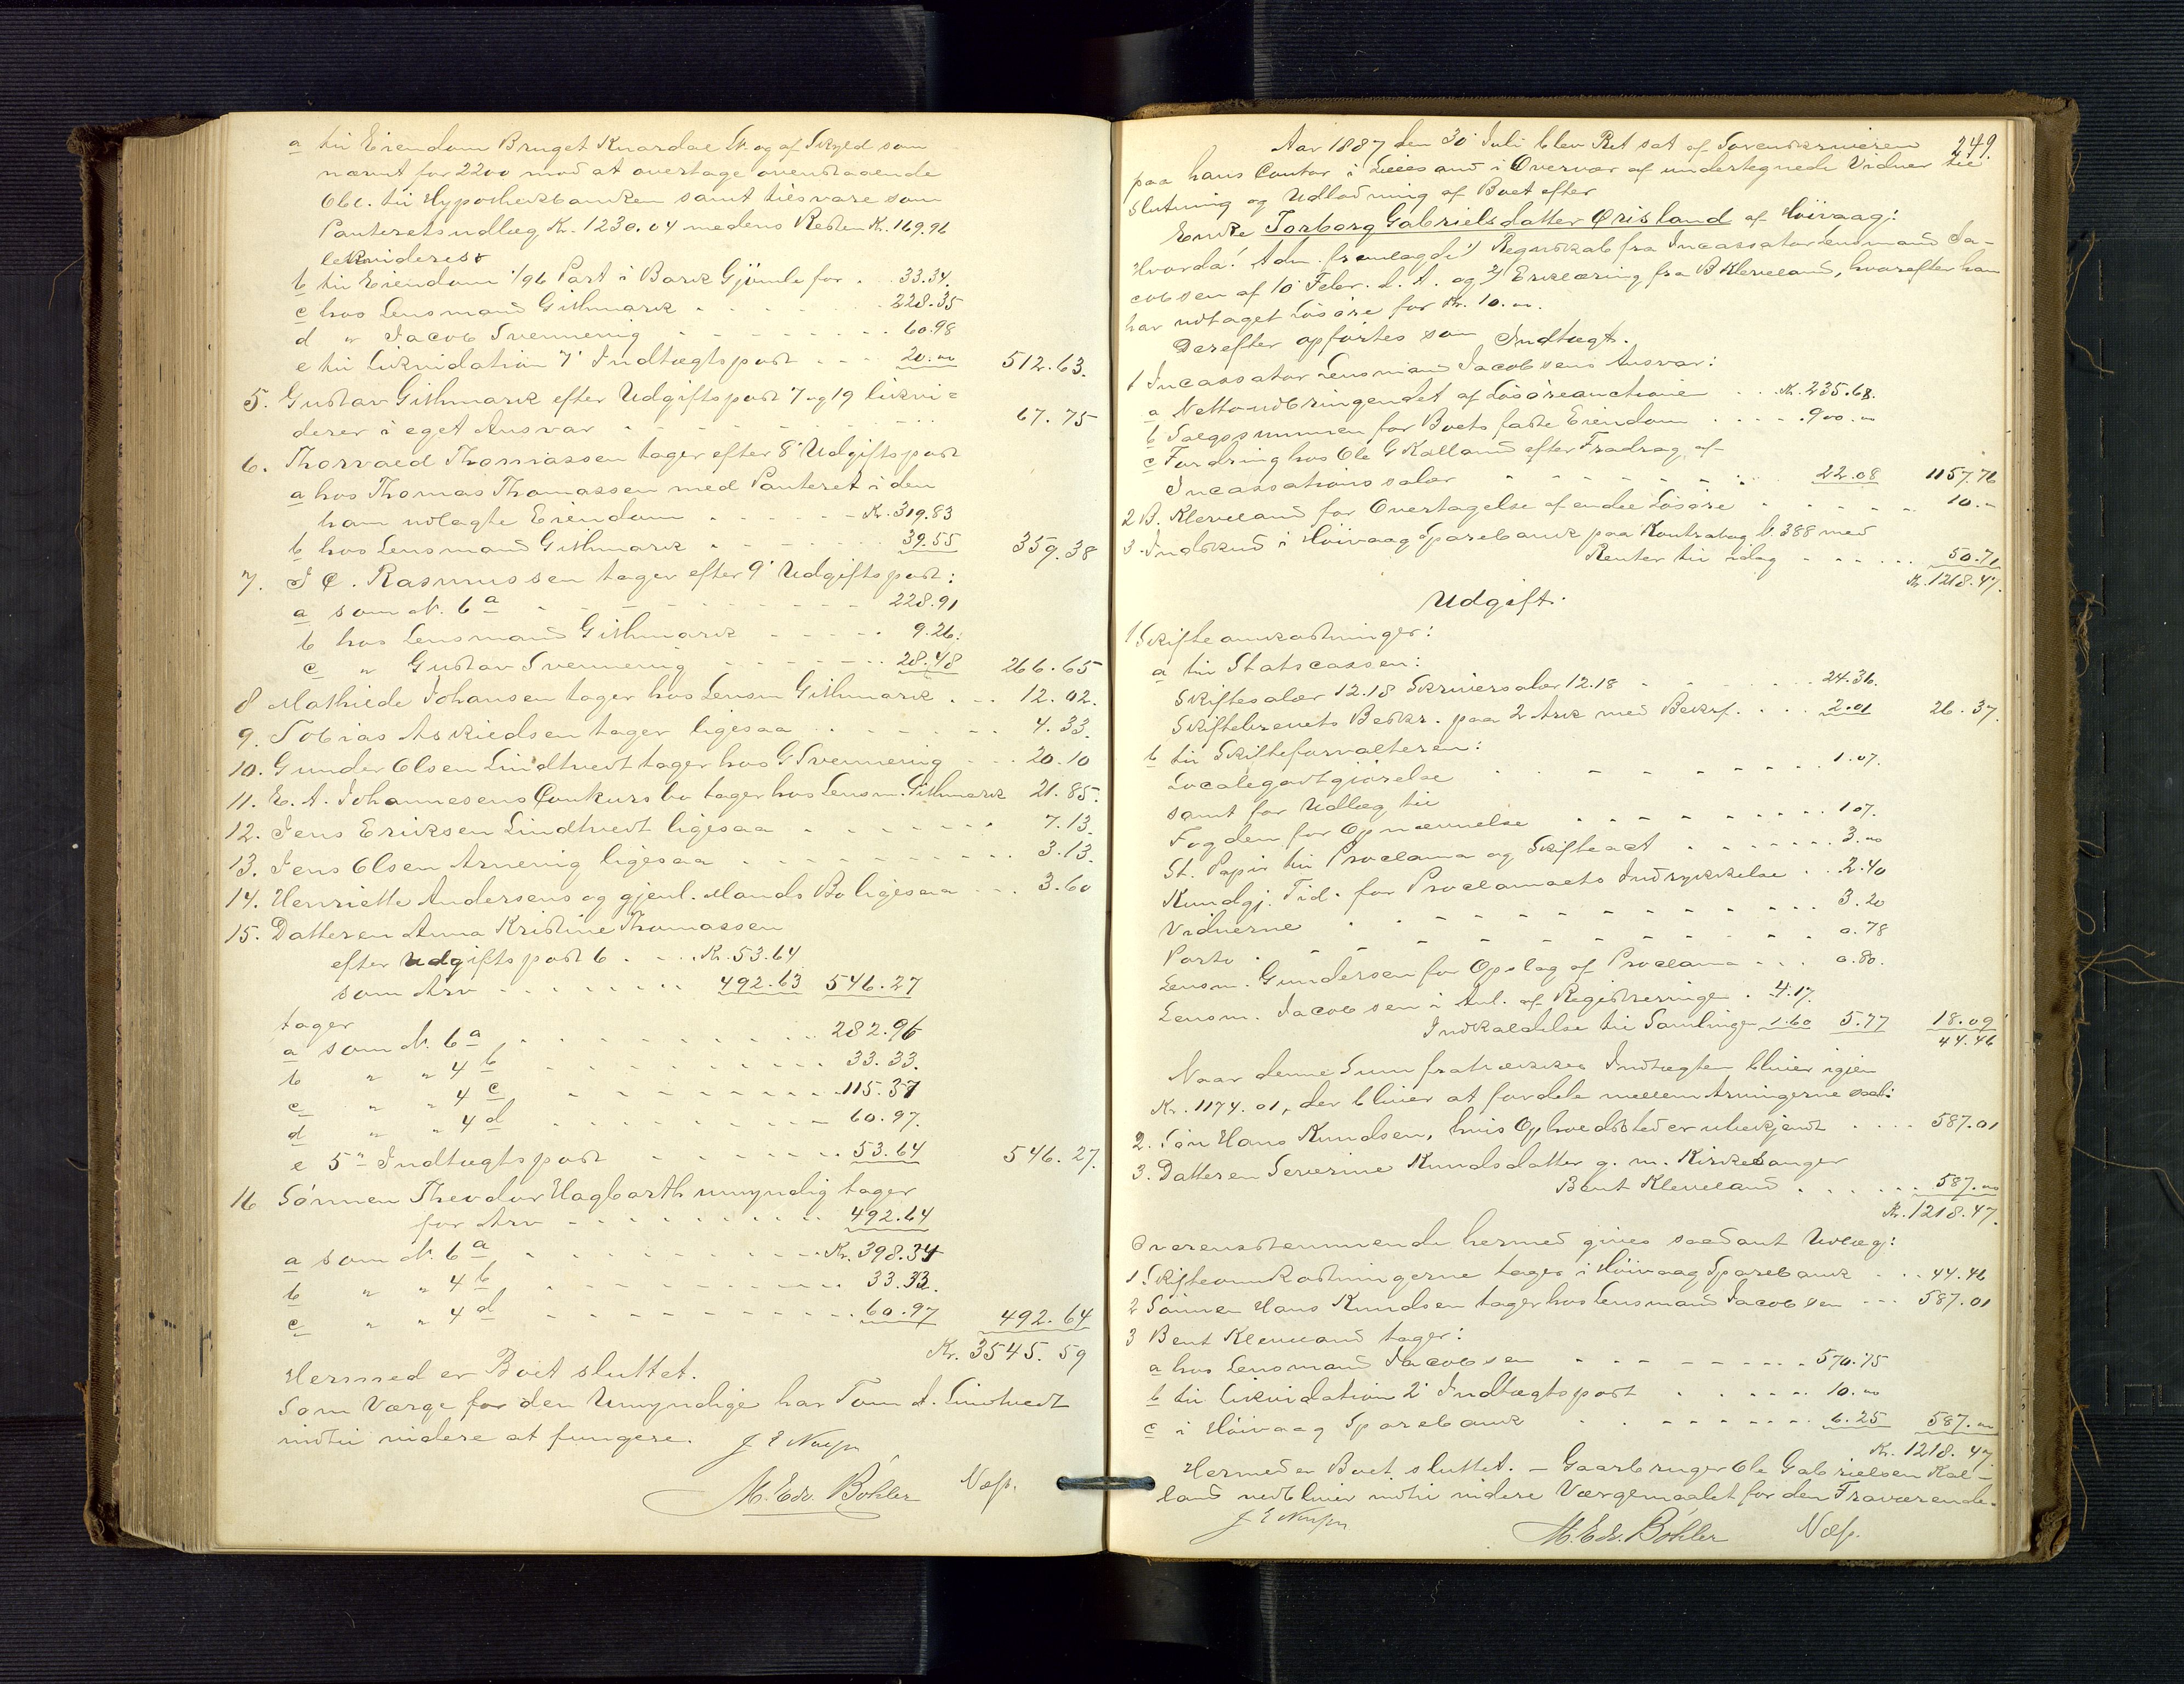 a til Eiendom Bruget Knardal Nr. og af Skyld som
nævnt for 2200 mod at overtage ovenstaaende
Obl. til Hypothekbanken samt tilsvare som
Panteretsudlæg Kr. 1230.04 medens Resten Kr. 169.96
likvideres
b til Eiendom 1/96 Part i Bark Gjömle for . 33.34.
c hos Lensmand Githmark . . . 228.35
d " Jacob Svennevig - - - - 60.98
e til Likvidation 7' Indtægtspost . . . 20.00 512.63.
5. Gustav Githmark efter Udgiftspost 7 og 19 likvi-
derer i eget Ansvar - - - - - 67.75
6. Thorvald Thomassen tager efter 8' Udgiftspost
a hos Thomas Thomassen med Panteret i den
ham udlagte Eiendom . . - - - Kr. 319.83
b hos Lensmand Githmark . - - - 39.55 359.38
7. J C. Rasmussen tager efter 9' Udgiftspost:
a som N. 6 a - - - - - - 228.91
b hos Lensmand Githmark - - - - . 9.26.
c " Gustav Svennevig - - - - . 28.48 266.65
8 Mathilde Johansen tager hos Lensm Githmark . . . 12.02.
9. Tobias Askildsen tager ligesaa . . - - - 4.33.
10. Gunder Olsen Lindtvedt tager hos G Svennevig - - . 20.10
11. E. A. Johannesens Conkursbo tager hos Lensm. Githmark 21.85.
12. Jens Eriksen Lindtvedt ligesaa . . - - - - 7.13.
13. Jens Olsen Arnevig ligesaa . . - - - - . . 3.13.
14. Henriette Andersens og gjenl. Mands Bo ligesaa - - . 3.60
15. Datteren Anna Kristine Thomassen
efter Udgiftspost 6 . - . . Kr. 53.64
som Arv - - . . . . . 492.63 546.27
tager
a som N. 6 a . . . . . . . . 282.96
b " " 4 b . . . . . . . 33.33.
c " " 4 c . . . . . . . 115.37
d " " 4 d . . . . . . . 60.97.
e 5" Indtægtspost . . . . . . 53.64 546.27.
16 Sønnen Theodor Hagbarth umyndig tager
for Arv - - - - - - - 492.64
a som N. 6 a . . . . . . . Kr. 398.34
b " " 4 b . . . . . . . 33.33.
c " " 4 d - - - - - - - 60.97 492.64
Kr. 3545.59
Hermed er Boet sluttet.
Som Værge for den Umyndige har Tom A. Lindtvedt
indtil videre at fungere.
M. Edv. Böhler
249.
Aar 1887 den 30' Juli blev Ret sat af Sorenskriveren
paa hans Contor i Lillesand i Overvær af undertegnede Vidner til
Slutning og Udlodning af Boet efter
Enke Torborg Gabrielsdatter Ørisland af Høivaag:
Hvorda! Adm. fremlagde 1) Regnskab fra Incassator Lensmand Ja-
cobsen af 10' Febr. d. A. og 2) Erklæring fra B Kleveland, hvorefter han
har udtaget Løsøre for Kr. 10.00.
Derefter opførtes som Indtægt.
1 Incassator Lensmand Jacobsens Ansvar:
a Nettoudbringendet af Løsøreauctionen . . Kr. 235.68.
b Salgssummen for Boets faste Eiendom . . - - 900.00
c Fordring hos Ole G Kalland efter Fradrag af
Incassationssalær - - - - - . . 22.08 1157.76
2 B. Kleveland for Overtagelse af endel Løsøre . . - - - 10.00
3. Indskud i Høivaag Sparebank paa Kontrabog N. 388 med
Renter til idag - - - . . . 50.71
Kr. 1218.47.
Udgift.
1 Skifteomkostninger:
a til Statscassen:
Skiftesalær 12.18 Skriversalær 12.18 - - - - 24.36.
Skiftebrevets Beskr. paa 2 Ark med Bekrf. . . . 2.01 26.37.
b til Skifteforvalteren:
Localegodtgjørelse . . - - - - - 1.07.
samt for Udlæg til
Fogden for Opnævnelse . . . . . . . 1.07.
St. Papir til Proclama og Skifteact . . . . . . 3.00
Kundgj. Tid. for Proclamaets Indrykkelse . . 2.40
Vidnerne . . - - - - - - . . 3.20
Porto . - - - - - - - . . 0.78
Lensm. Gundersen for Opslag af Proclama - . . 0.80.
Lensm. Jacobsen i Anl. af Registreringen . 4.17.
Indkaldelse til Samlingen 1.60 5.77 18.09
44.46
Naar denne Sum fratrækkes Indtægten bliver igjen
Kr. 1174.01, der bliver at fordele mellem Arvingerne saal:
2. Søn Hans Knudsen, hvis Opholdsted er ubekjendt . . . . 587.01
3. Datteren Severine Knudsdatter g. m. Kirkesanger
Bent Kleveland . . . . . 587.00
Kr. 1218.47.
Overensstemmende hermed gives saadant Udlæg:
1 Skifteomkostningerne tages i Høivaag Sparebank . . . 44.46
2 Sønnen Hans Knudsen tager hos Lensmand Jacobsen - - - 587.01
3 Bent Kleveland tager:
a hos Lensmand Jacobsen . . - - - - - . 570.75
b til Likvidation 2' Indtægtspost . . . - - . 10.00
c i Høivaag Sparebank . . - - - - - . 6.25 587.00
Kr. 1218.47.
Hermed er Boet sluttet. - Gaardbruger Ole Gabrielsen Kal-
land vedbliver indtil videre Værgemaalet for den Fraværende.
M. Edv. Böhler